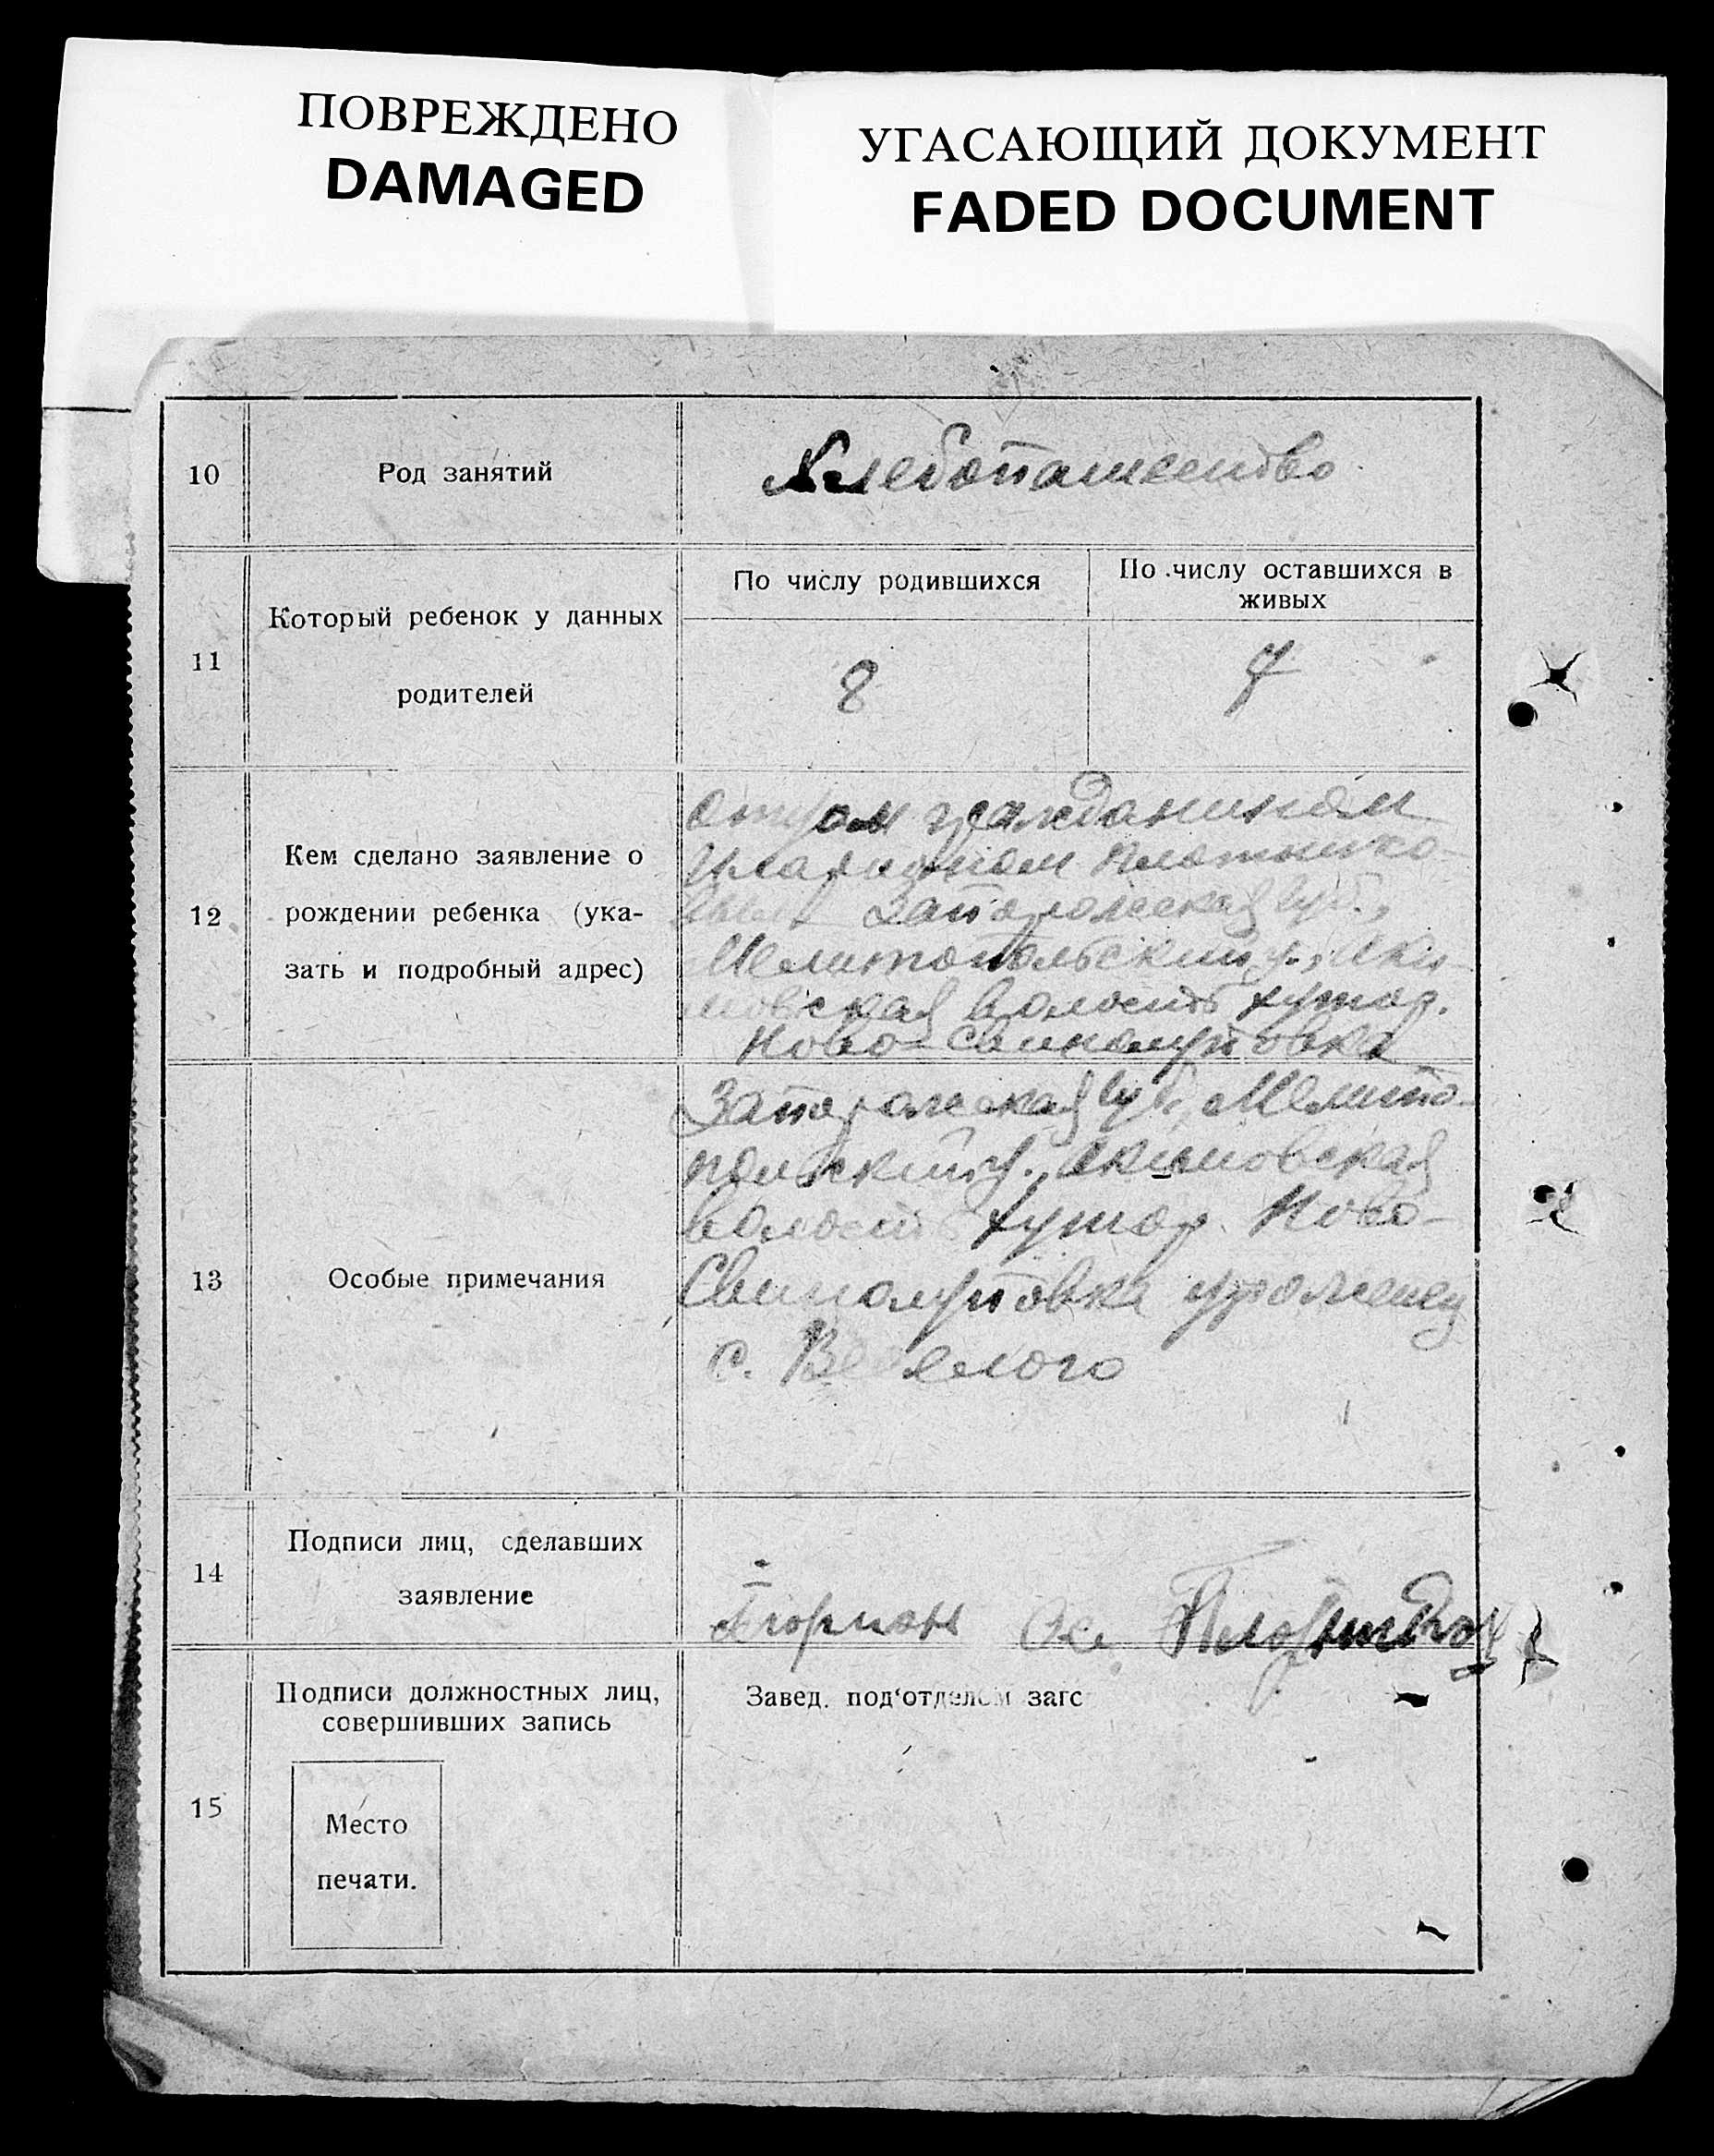 ПОВРЕЖДЕНО
DAMAGED
УГАСАЮЩИЙ ДОКУМЕНТ
FADED DOCUMENT
10
Род занятий
Хлебопашество
11
Который ребенок у данных
родителей
По числу родившихся
По числу оставшихся в
живых
8
7
12
Кем сделано заявление о
рождении ребенка (ука-
зать и подробный адрес)
отцом гражданином
Иларионом Плотнико-
вым Запорожская губ.,
Мелитопольский у., Аки-
мовская волость хутор.
Ново-Свинолуповка
13
Особые примечания
Запорожская губ., Мелито-
польский у., Акимовская
волость хутор Ново-
Свинолуповка уроженец
с. Веселого
14
Подписи лиц, сделавших
заявление
Плотников
15
Подписи должностных лиц,
совершивших запись
Место
печати.
Завед. под'отделом загс